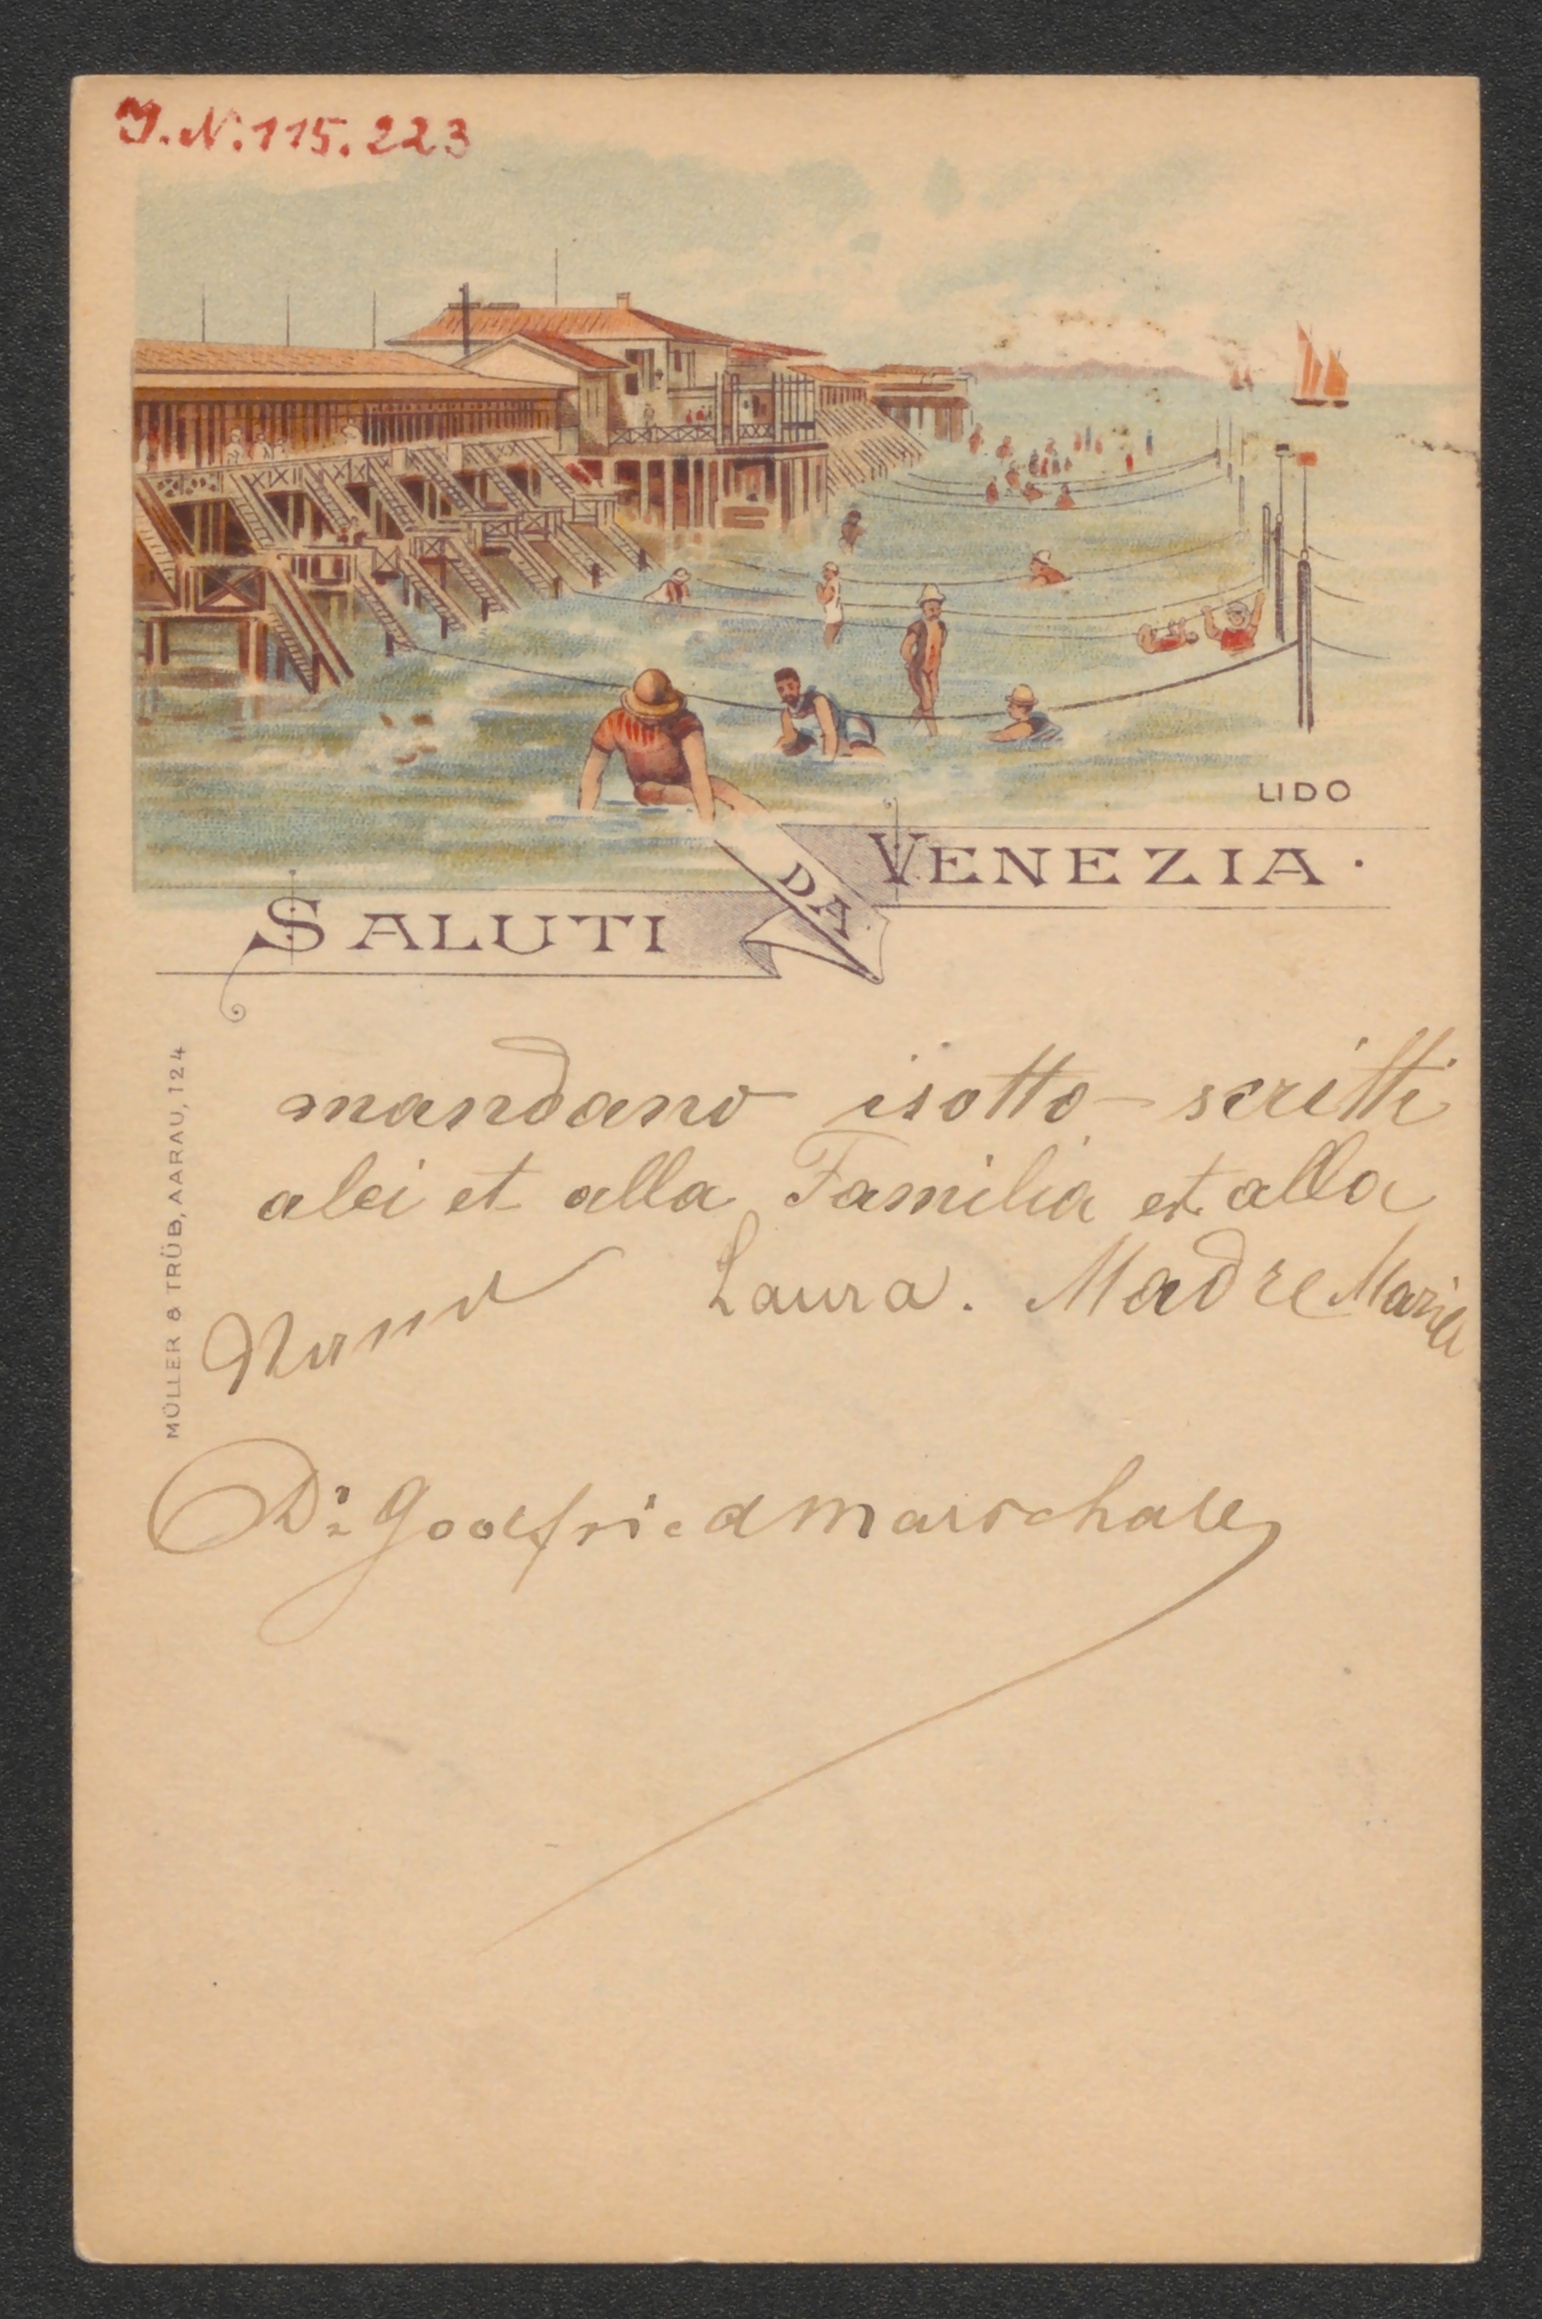 J.N. 115.223
LIDO
SALUTI DA VENEZIA.
MÜLLER & TRÜB, AARAU, 124
mandano isotto-scritti
alei et alla Familia et alla
Laura. Madre Maria
Dr Godfried Marschall